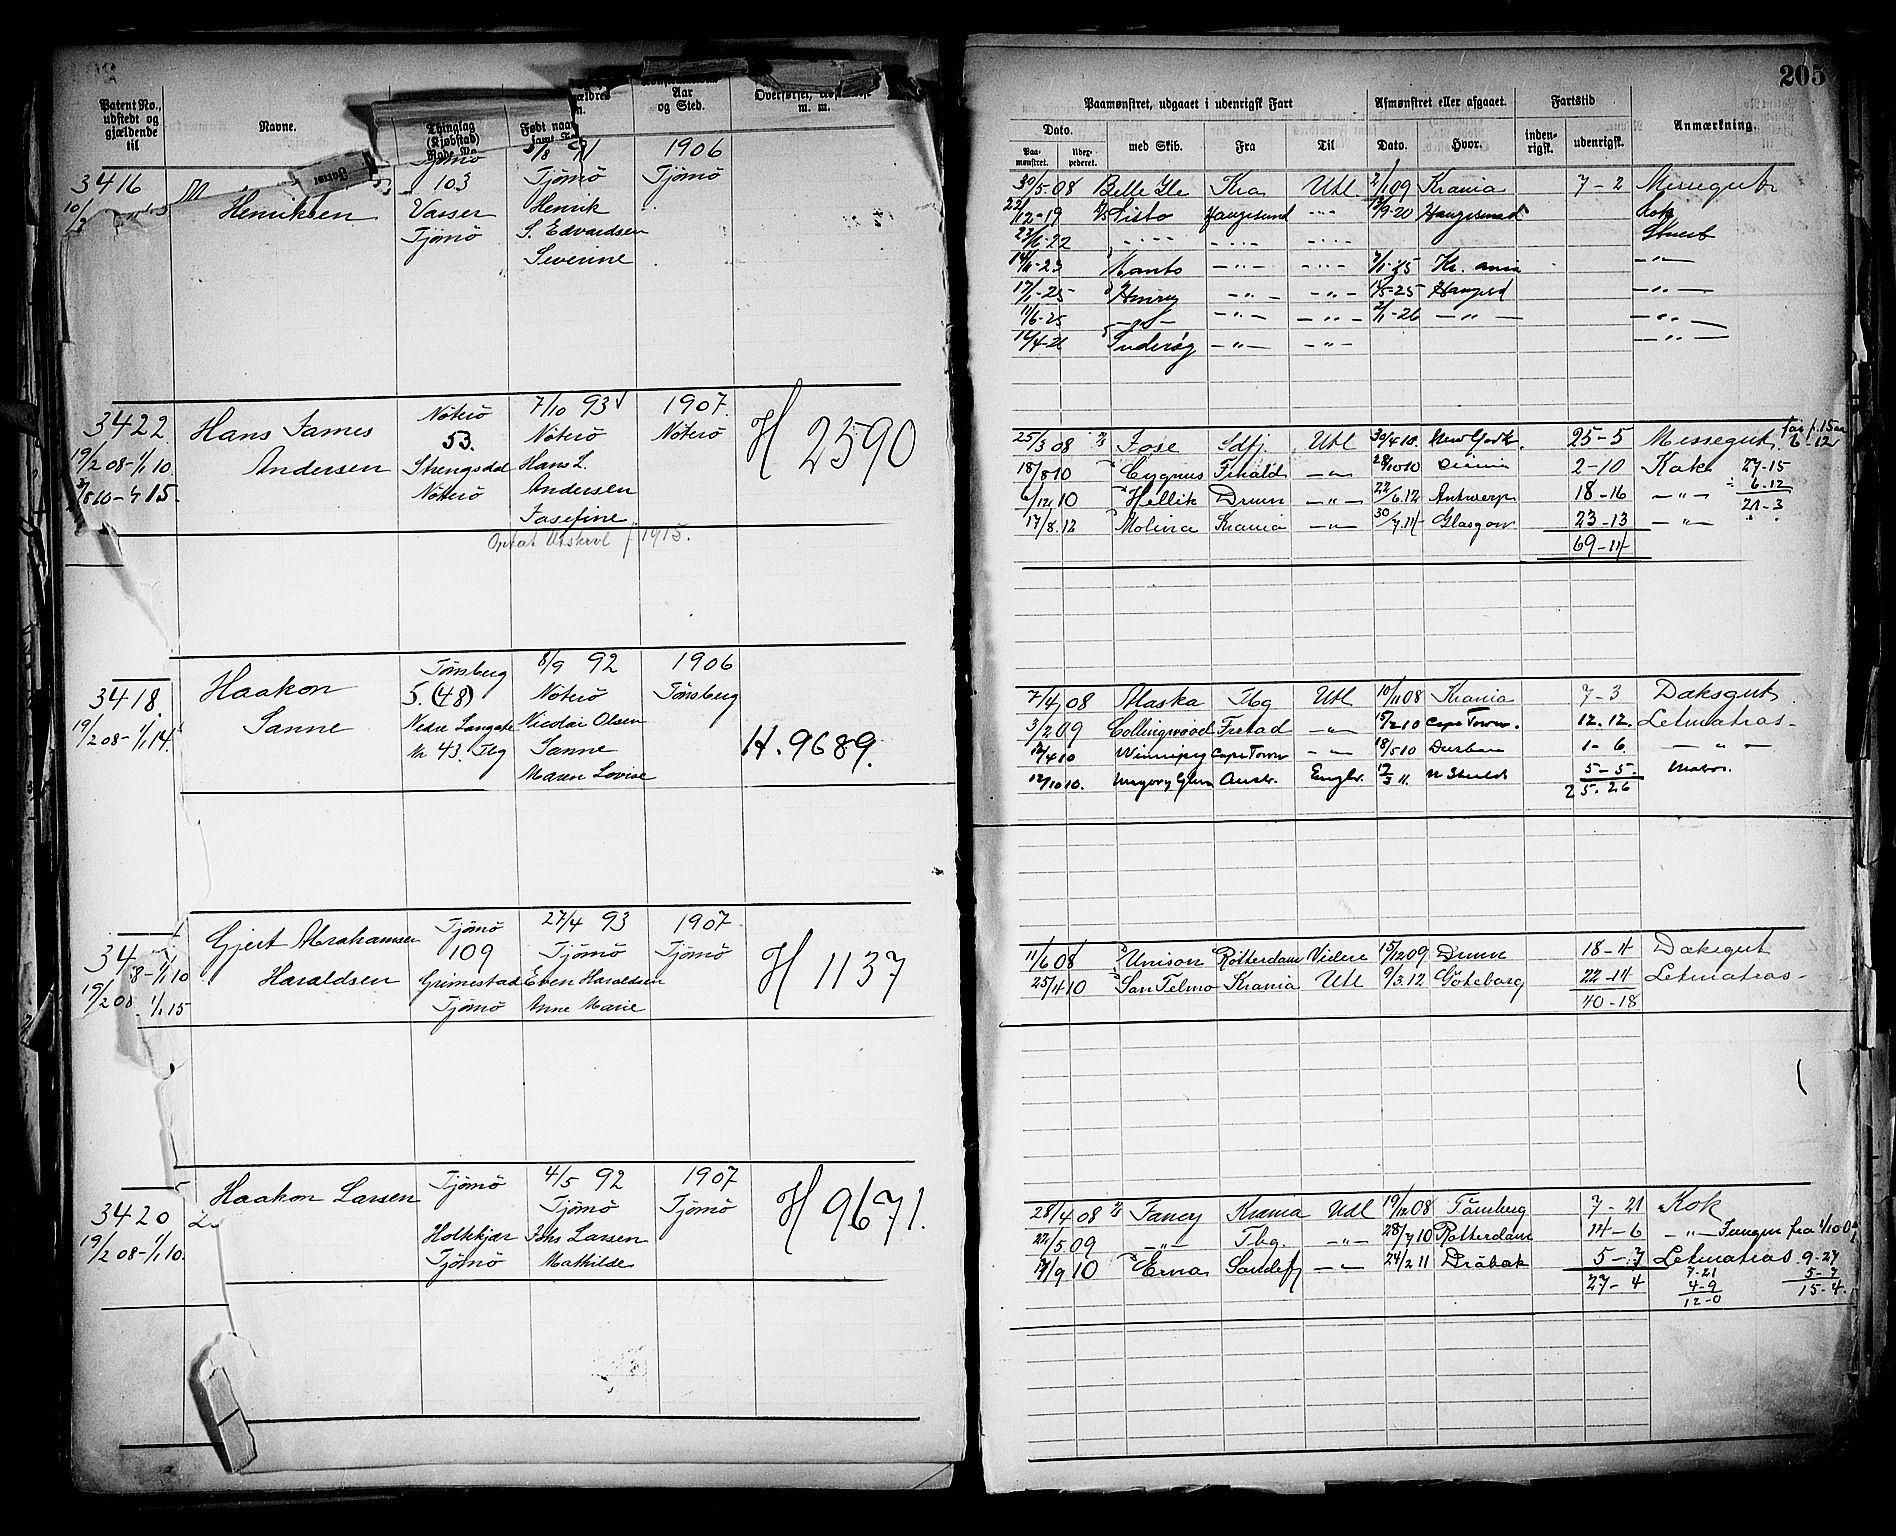 205
Patent No., udstedt og gjældende til
Navne.
Thinglag (Kjøbstad)
Født naar
Aar og Sted.
m. m.
Paamønstret, udgaaet i udenrigsk Fart
Afmønstret eller afgaaet.
Fartstid
Anmærkning.
Dato.
Paamønstret.
med Skib.
Fra
Til
Dato.
Hvor.
indenrigsk.
udenrigsk.
3416
Henriksen
103
Vasser
Tjømø
Tjømø
Henrik
S. Edvardsen
Severine
1906
Tjømø
30/5 08 Belle Ile Kra Utl 2/1 09 Krania 7-2 Messegut
22/12-19 Sisto Haugesund -"- 13/9-20 Haugesund Kok
23/6-22 -"- -"- -"- Stuert
14/11-23 -"- -"- Kr.ania -"-
17/1-25 Henry -"- -"- 14/5-25 Haugesd -"-
11/6-25 -"- -"- -"- 2/1-26 -"- -"-
-"- -"- -"-
3422
19/2 08-1/1 10
Hans James
Andersen
Nøterø
53.
Nøterø
7/10 93
Nøterø
Hans L.
Andersen
Josefine
1907.
Nøterø
H 2590
1915.
25/3 08 Jose Sdfj. Utl 30/4 10. New York. 25-5 Messegut
18/8 10 Cygnus Frhald -"- 28/10 10 2-10 Kok 27-15
6/12 10 Hellik Drmn -"- 22/6.12 Antwerp 18-16 -"- 6.12
17/8.12 Molina Krania -"- 30/7.14 Glasgow 23-13 -"- 21-3
69-14
3418.
19/2 08-1/1 14.
Haakon
Sanne
Tønsberg
5. (48)
Nedre Langate
Nr 43. Tbg
8/9 92
Nøterø
Nicolai Olsen
Sanne
Maren Lovise
1906
Tønsberg
H. 9689.
7/4 08 Alaska Tbg Utl 10/11 08 Krania 7-3 Dæksgut
3/2 09 Collingwood Frstad -"- 15/2 10 Cape Town. 12.12. Letmatros-
12/4 10 Winnipeg Cape Town -"- 18/5 10 Durban 1-6. -"-
12/10 10. Austr. Engl. 12/3 11. 5-5. Matros.
25.26
34
19/2 08 1/1 15
Gjert Abrahamsen
Haraldsen
Tjømø
109
Grimestad
Tjømø
27/4 93
Tjømø
Even Haraldsen
Anne Marie
1907
Tjømø
H 1137
11/6 08 Unison Rotterdam Videre 15/12 09 Drmn 18-4 Dæksgut
25/4 10 San Telmo Krania Utl 9/3.12 Göteborg 22-14 Letmatros-
40-18
3420
19/2 08-1/1 10.
Haakon Larsen
Tjømø
Holtekjær
Tjømø
4/5 92
Tjømø
Johs Larsen
Mathilde
1907
Tjømø
H 9671.
28/4 08 Fancy Krania Udl 19/12 08 Tønsberg 7-21 Kok
22/5.09 -"- Tbg. -"- 28/7 10 Rotterdam 14-6 -"- Jungm fra 1/10 09
9 10 Erna Sandefj -"- 24/2 11 Drøbak 5-7 Letmatros 9-27
27-4 7-21 5-7
4-9 15-4.
12-0